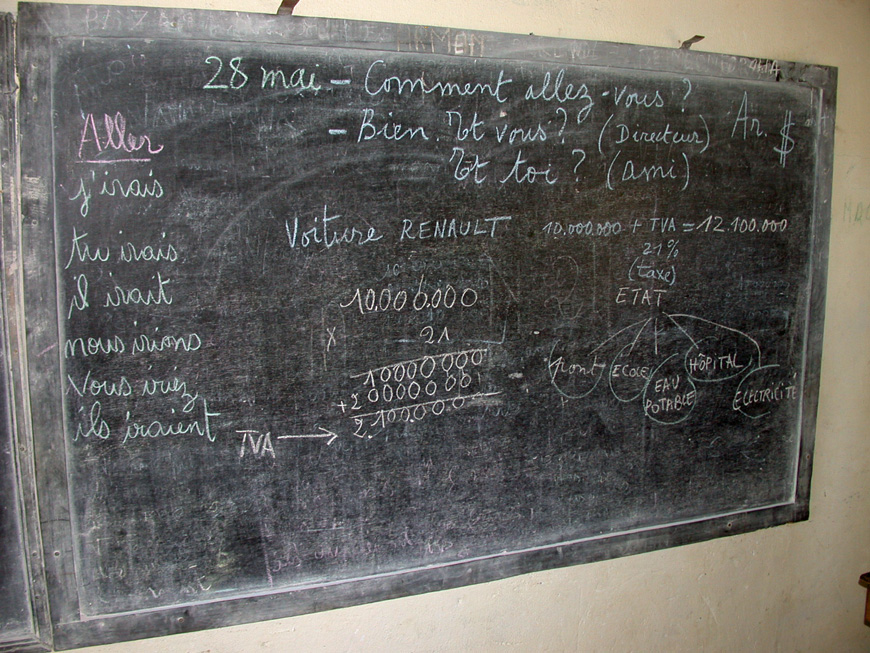 28 mai - Comment allez-vous ?
- Bien. Et vous ? (Directeur)
Et toi ? (ami)
Ar. $
Aller
j'irais
tu irais
il irait
nous irions
Vous iriez
ils iraient
Voiture RENAULT 10.000.000 + TVA = 12.100.000
21%
(taxe)
ETAT
pont
ECOLE
EAU
POTABLE
HÔPITAL
ELECTRICITÉ
10.000.000
x 21
10000000
+20000000
TVA → 2.100.000